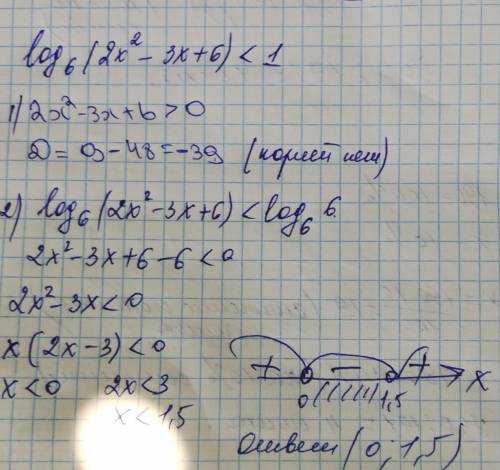 log₆(2x² - 3x + 6) < 1
1) 2x² - 3x + 6 > 0
D = 9 - 48 = -39 (корней нет)
2) log₆(2x² - 3x + 6) < log₆ 6.
2x² - 3x + 6 - 6 < 0
2x² - 3x < 0
x(2x - 3) < 0
x < 0 2x < 3
x < 1,5
+ - + x
0 1,5
Ответ (0; 1,5)